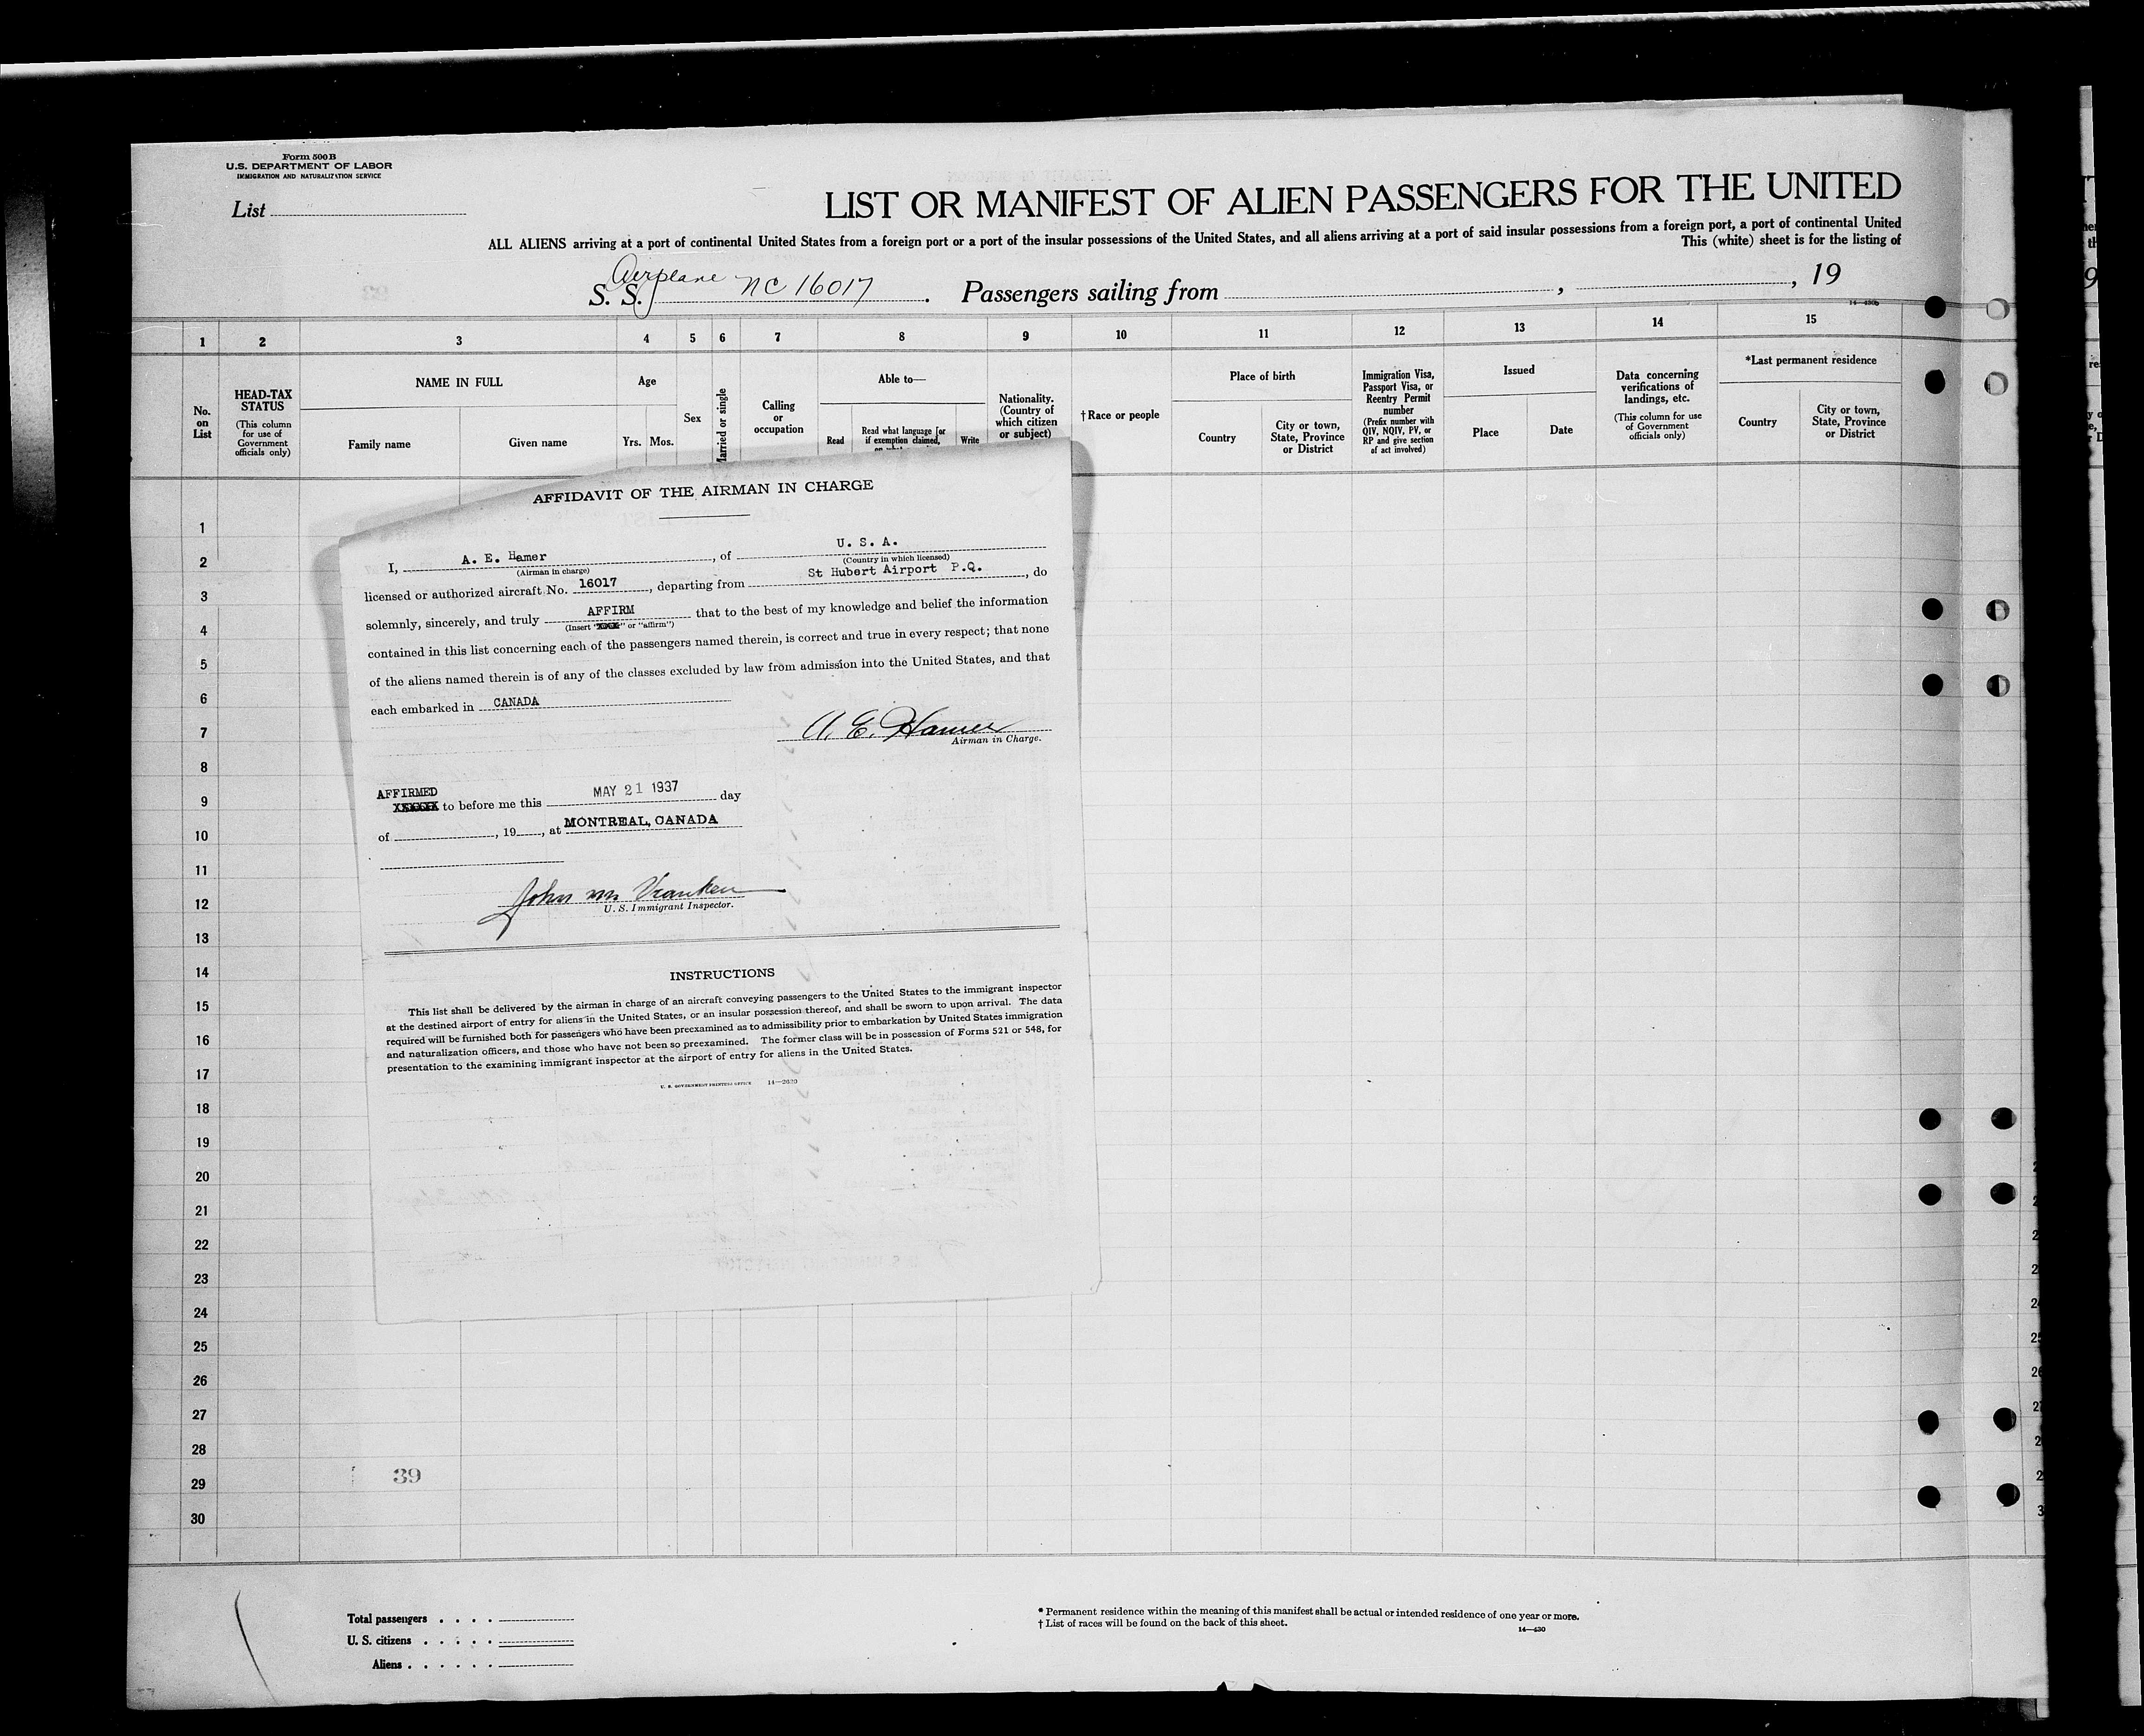 Form 500 B
U.S. DEPARTMENT OF LABOR
IMMIGRATION AND NATURALIZATION SERVICE
List
LIST OR MANIFEST OF ALIEN PASSENGERS FOR THE UNITED
ALL ALIENS arriving at a port of continental United States from a foreign port or a port of the insular possessions of the United States, and all aliens arriving at a port of said insular possessions from a foreign port, a port of continental United
This (white) sheet is for the listing of
Airplane
S. S. NC 16017. Passengers sailing from , , 19
14—430b
1 2 3 4 5 6 7 8 9 10 11 12 13 14 15
No. on List
HEAD-TAX STATUS
(This column for use of Government officials only)
NAME IN FULL
Family name
Given name
Age
Yrs. Mos.
Sex
Married or single
Calling or occupation
Able to—
Read
Read what language [or if exemption claimed,
Write
Nationality. (Country of which citizen or subject)
†Race or people
Place of birth
Country
City or town, State, Province or District
Immigration Visa, Passport Visa, or Reentry Permit number
(Prefix number with QIV, NQIV, PV, or RP and give section of act involved)
Issued
Place
Date
Data concerning verifications of landings, etc.
(This column for use of Government officials only)
*Last permanent residence
Country
City or town, State, Province or District
1
2
3
4
5
6
7
8
9
10
11
12
13
14
15
16
17
18
19
20
21
22
23
24
25
26
27
28
29
30
AFFIDAVIT OF THE AIRMAN IN CHARGE
I, A. E. Hamer, of U. S. A.
(Airman in charge) (Country in which licensed)
licensed or authorized aircraft No. 16017, departing from St Hubert Airport P.Q., do
solemnly, sincerely, and truly AFFIRM that to the best of my knowledge and belief the information
(Insert "XXXX" or "affirm")
contained in this list concerning each of the passengers named therein, is correct and true in every respect; that none
of the aliens named therein is of any of the classes excluded by law from admission into the United States, and that
each embarked in CANADA
A. E. Hamer
Airman in Charge.
AFFIRMED
XXXXXX to before me this MAY 21 1937 day
of , 19 , at MONTREAL, CANADA
John M Vranken
U. S. Immigrant Inspector.
INSTRUCTIONS
This list shall be delivered by the airman in charge of an aircraft conveying passengers to the United States to the immigrant inspector
at the destined airport of entry for aliens in the United States, or an insular possession thereof, and shall be sworn to upon arrival. The data
required will be furnished both for passengers who have been preexamined as to admissibility prior to embarkation by United States immigration
and naturalization officers, and those who have not been so preexamined. The former class will be in possession of Forms 521 or 548, for
presentation to the examining immigrant inspector at the airport of entry for aliens in the United States.
U. S. GOVERNMENT PRINTING OFFICE 14—2620
39
Total passengers
U. S. citizens
Aliens
* Permanent residence within the meaning of this manifest shall be actual or intended residence of one year or more.
† List of races will be found on the back of this sheet.
14—430